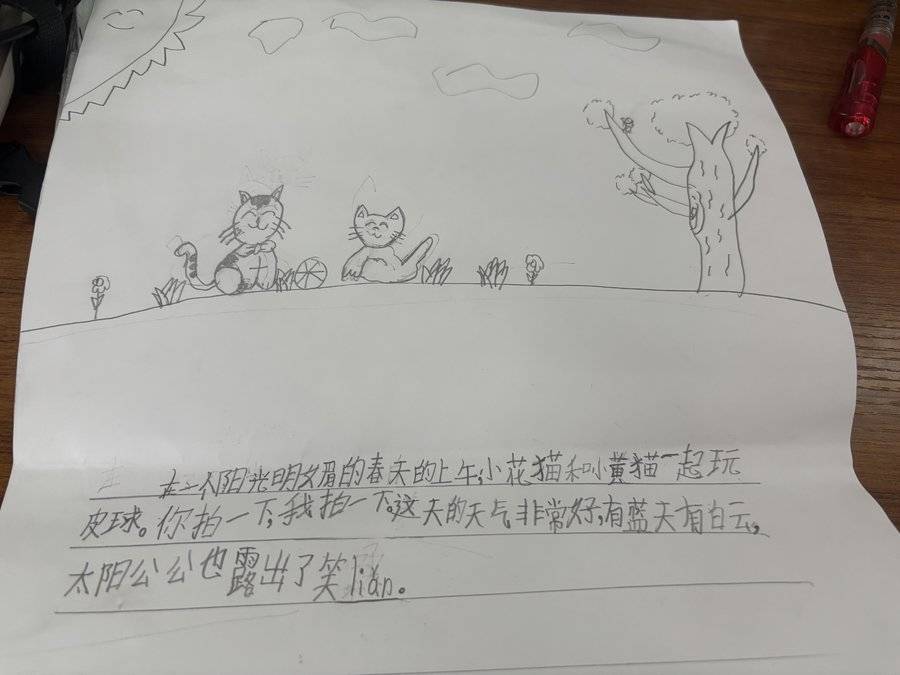 在一个阳光明媚的春天的上午,小花猫和小黄猫一起玩
皮球。你拍一下,我拍一下。这天的天气非常好,有蓝天有白云,
太阳公公也露出了笑liǎn。